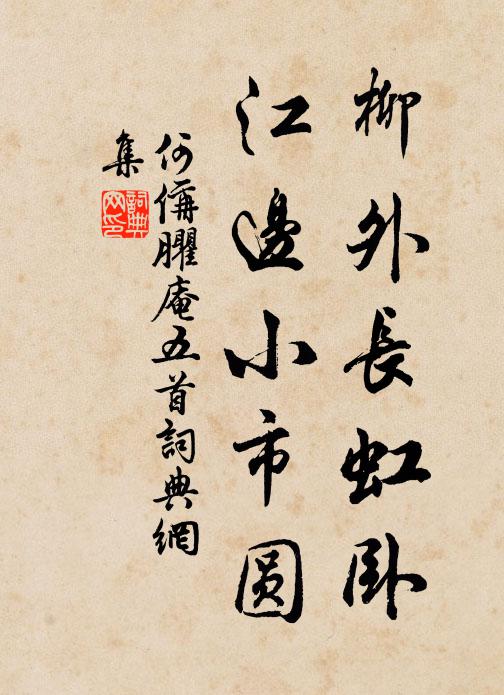 柳外長虹卧
江邊小市圆
何侢臞庵五首詞典網
集
詞典网印